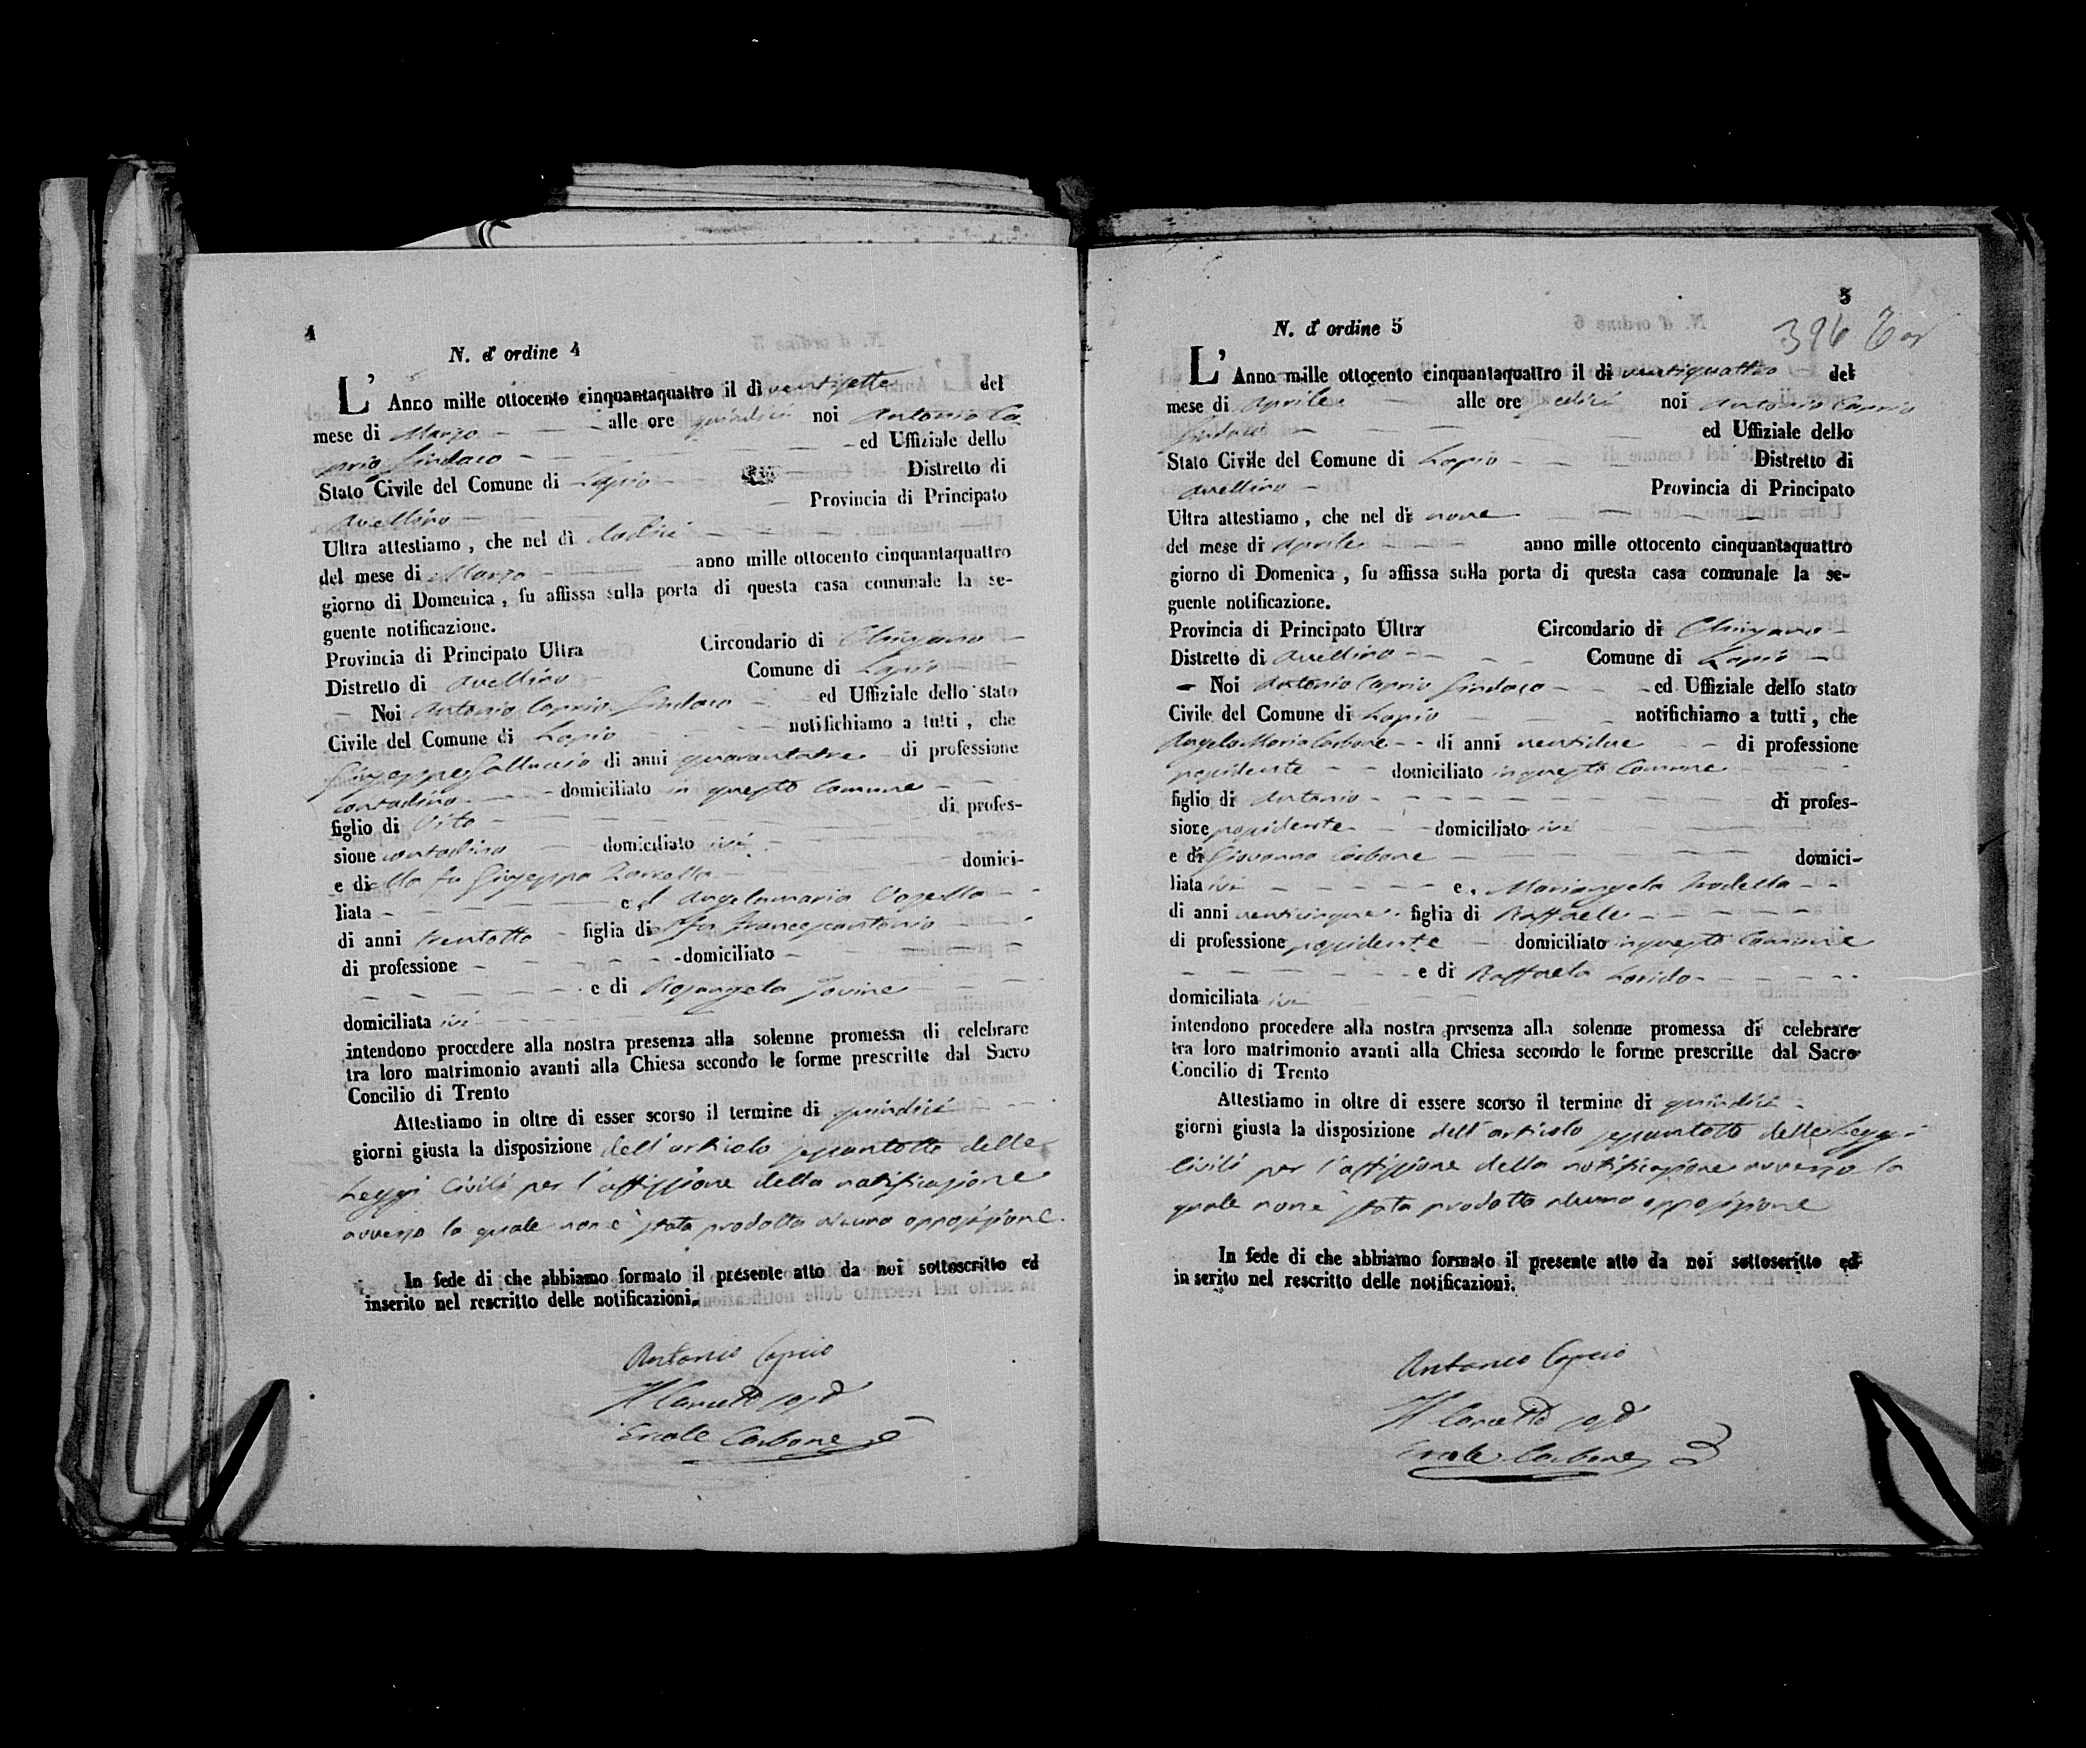 4
N. d' ordine 4
L' Anno mille ottocento cinquantaquattro il dì ventisette del
mese di Marzo alle ore quindici noi Antonio Ca
prio Sindaco ed Uffiziale dello
Stato Civile del Comune di Lapio Distretto di
Avellino Provincia di Principato
Ultra attestiamo, che nel dì dodici
del mese di Marzo anno mille ottocento cinquantaquattro
giorno di Domenica, fu affissa sulla porta di questa casa comunale la se-
guente notificazione.
Provincia di Principato Ultra Circondario di Chiusano
Distretto di Avellino Comune di Lapio
Noi Antonio Caprio Sindaco ed Uffiziale dello stato
Civile del Comune di Lapio notifichiamo a tutti, che
Giuseppe Galluccio di anni quarantatre di professione
contadino domiciliato in questo Comune
figlio di Vito di profes-
sione contadino domiciliato ivi
e di della fu Giuseppa domici-
liata ed Angelamaria
di anni trentotto figlia di del fu Francescantonio
di professione domiciliato
e di Rosangela Iovine
domiciliata ivi
intendono procedere alla nostra presenza alla solenne promessa di celebrare
tra loro matrimonio avanti alla Chiesa secondo le forme prescritte dal Sacro
Concilio di Trento
Attestiamo in oltre di esser scorso il termine di quindici
giorni giusta la disposizione dell'articolo sessantotto delle
Leggi Civili per l'affissione della notificazione
avverso la quale non è stata prodotta alcuna opposizione.
In fede di che abbiamo formato il presente atto da noi sottoscritto ed
inserito nel rescritto delle notificazioni.
Antonio Caprio
Ercole Carbone
5
396
N. d' ordine 5
L' Anno mille ottocento cinquantaquattro il dì ventiquattro del
mese di Aprile alle ore sedici noi Antonio Caprio
Sindaco ed Uffiziale dello
Stato Civile del Comune di Lapio Distretto di
Avellino Provincia di Principato
Ultra attestiamo, che nel dì nove
del mese di Aprile anno mille ottocento cinquantaquattro
giorno di Domenica, fu affissa sulla porta di questa casa comunale la se-
guente notificazione.
Provincia di Principato Ultra Circondario di Chiusano
Distretto di Avellino Comune di Lapio
Noi Antonio Caprio Sindaco ed Uffiziale dello stato
Civile del Comune di Lapio notifichiamo a tutti, che
Angelo Maria Carbone di anni ventidue di professione
possidente domiciliato in questo Comune
figlio di Antonio di profes-
sione possidente domiciliato ivi
e di Giovanna Carbone domici-
liata ivi e Mariangela
di anni venticinque figlia di Raffaele
di professione possidente domiciliato in questo Comune
e di Raffaela
domiciliata ivi
intendono procedere alla nostra presenza alla solenne promessa di celebrare
tra loro matrimonio avanti alla Chiesa secondo le forme prescritte dal Sacro
Concilio di Trento
Attestiamo in oltre di essere scorso il termine di quindici
giorni giusta la disposizione dell'articolo sessantotto delle Leggi
Civili per l'affissione della notificazione avverso la
quale non è stata prodotta alcuna opposizione
In fede di che abbiamo formato il presente atto da noi sottoscritto ed
in serito nel rescritto delle notificazioni.
Antonio Caprio
Ercole Carbone